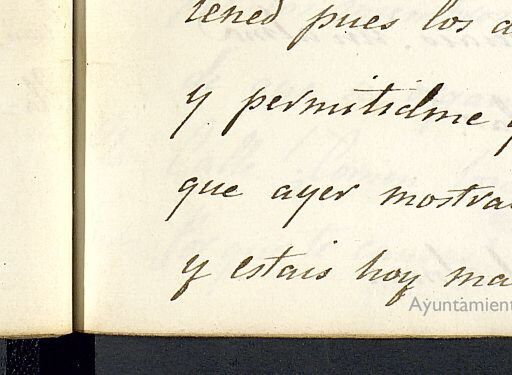 tened pues los a
y permitidme q
que ayer mostra
y estais hoy ma
Ayuntamient